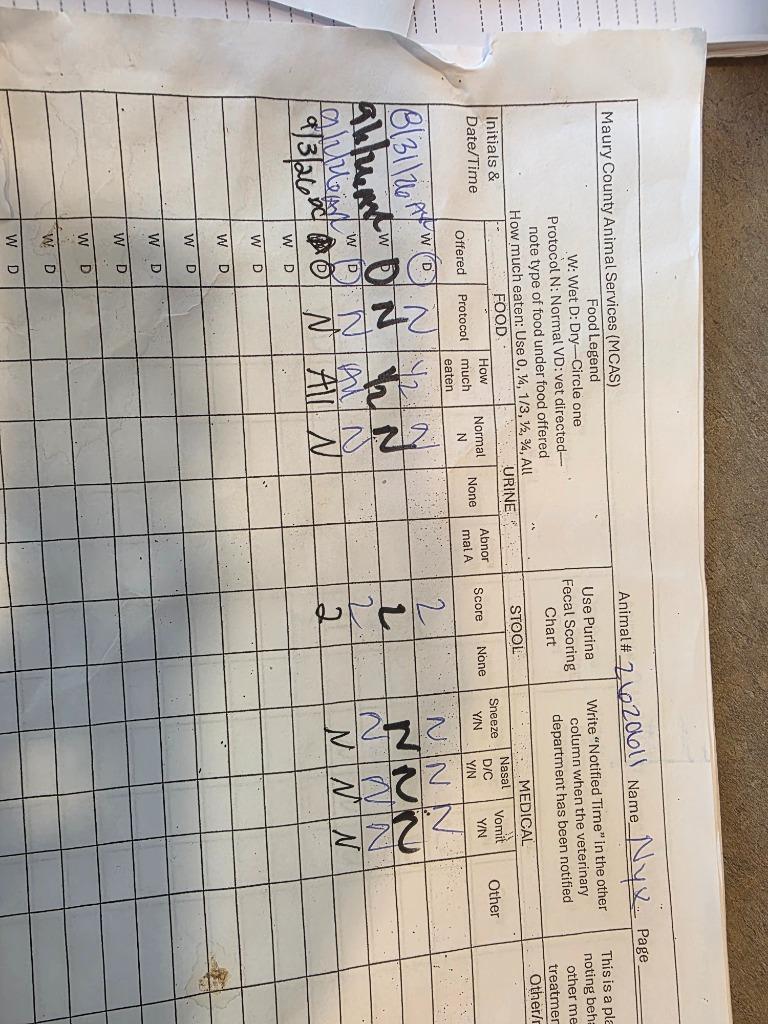 Maury County Animal Services (MCAS)
Animal # 26206011 Name Nyx Page
Food Legend
W: Wet D: Dry—Circle one
Protocol N: Normal VD: vet directed—
note type of food under food offered
How much eaten: Use 0, ¼, 1/3, ½, ¾, All
Use Purina
Fecal Scoring
Chart
Write "Notified Time" in the other
column when the veterinary
department has been notified
This is a pla
noting beha
other me
treatmen
Other/
FOOD URINE STOOL MEDICAL
Initials & Date/Time Offered Protocol How much eaten Normal N None Abnor mal A Score None Sneeze Y/N Nasal D/C Y/N Vomit Y/N Other
8/31/26 W D N 1/2 N 2 N N N
W D N 1/2 N 2 N N N
W D N All N 2 N N N
9/3/26 D N All N 2 N N N
W D
W D
W D
W D
W D
W D
W D
W D
W D